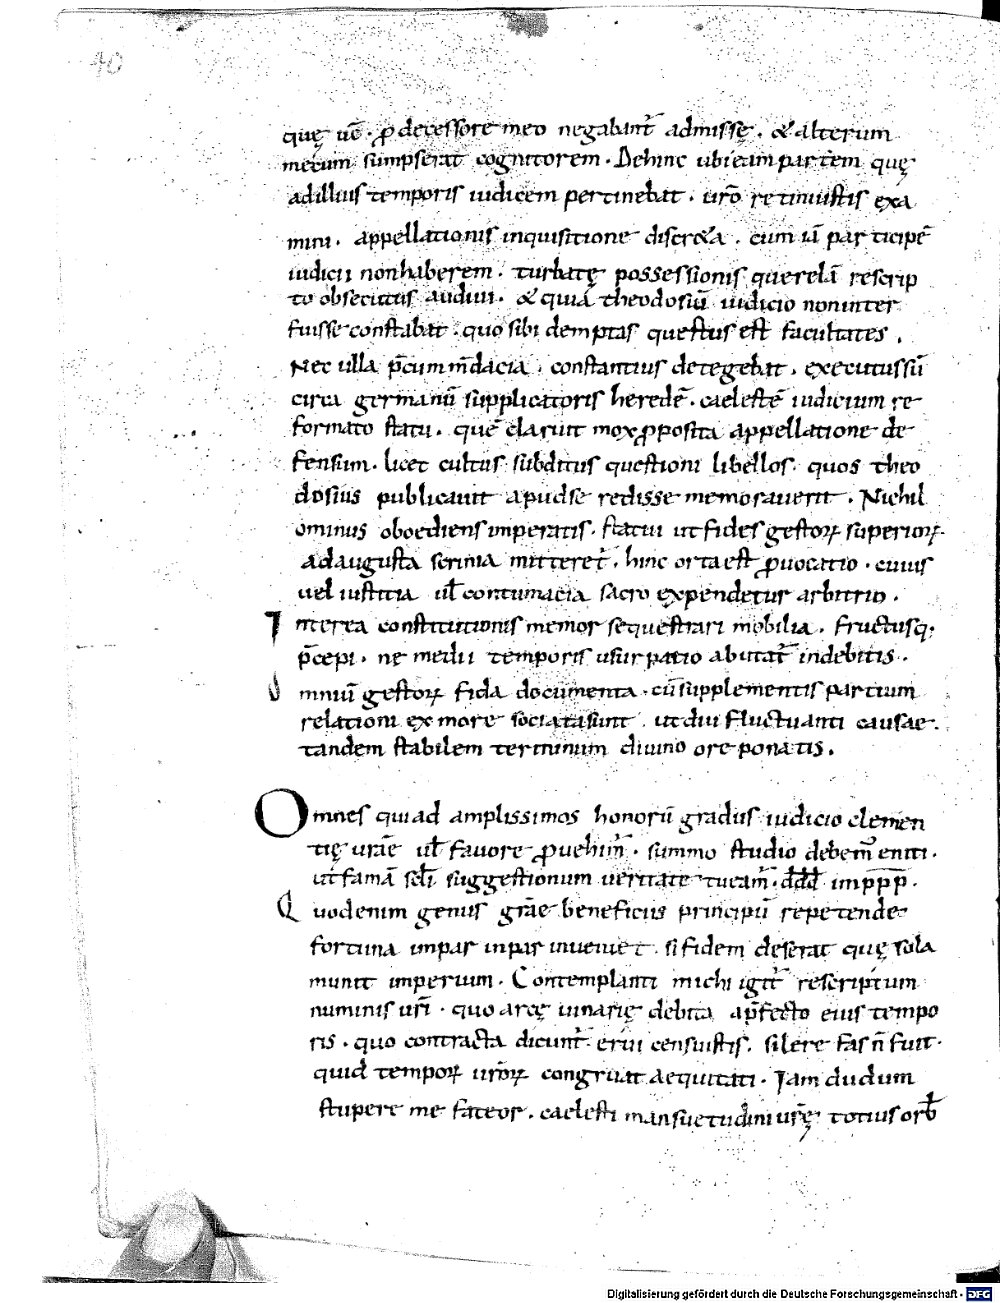 40
quę uē . ꝓdecessore meo negabant᷒ admissę . & alterum
mecum sumpserat cognitorem . Dehinc ubi eam partem quę
ad illius temporis iudicem pertinebat . ur̄o retinuistis exa
mini . appellationis inquisitione discr&a . cum iā participē
iudicii non haberem . turbatę possessionis querelā rescrip
to obsecutus audiui . & quiā theodosiū iudicio non inter
fuisse constabat . quo sibi demptas questus est facultates .
Nec ulla p̄cum m̄dacia . constantius detegebat . executus sū
circa germanū supplicatoris heredē . caelestē iudicium re
formato statu . quē claruit mox ꝓposita appellatione de
fensum . licet cultus subditus questioni libellos . quos theo
dosius publicauit apud se redisse memorauerit . Nichil
ominus oboediens imperatis . statui ut fides gestoꝝ superioꝝ
ad augusta scrinia mitteret᷒ . hinc orta est ꝓuocatio . cuius
uel iustitia ul̄ contumacia sacro expendetur arbitrio .
Interea constitutionis memor sequestrari mobilia . fructusq;
p̄cepi . ne medii temporis usurpatio abutat᷒ indebitis .
Omniū gestoꝝ fida documenta . cū supplementis partium
relationi ex more sociata sunt . ut diu fluctuanti causae .
tandem stabilem terminum diuino ore ponatis .
Omnes qui ad amplissimos honorū gradus iudicio clemen
tię ur̄ae ul̄ fauore ꝓuehim᷒ . summo studio debem᷒ eniti .
ut famā sc̄li suggestionum ueritate tueam᷒ . d̄d̄d̄ imp̄p̄p̄ .
Quod enim genus gr̄ae beneficiis principū repetende
fortuna impar inpar inueniet . si fidem deserat quę sola
munit imperium . Contemplanti michi igit᷒ rescriptum
numinis ur̄i . quo arcę uinarię debita a p̄fecto eius tempo
ris . quo contracta dicunt᷒ erui censuistis . silere fas n̄ fuit .
quid tempoꝝ ur̄oꝝ congruat aequitati . Iam dudum
stupere me fateor . caelesti mansuetudini ur̄ę totius orb̄
Digitalisierung gefördert durch die Deutsche Forschungsgemeinschaft - DFG